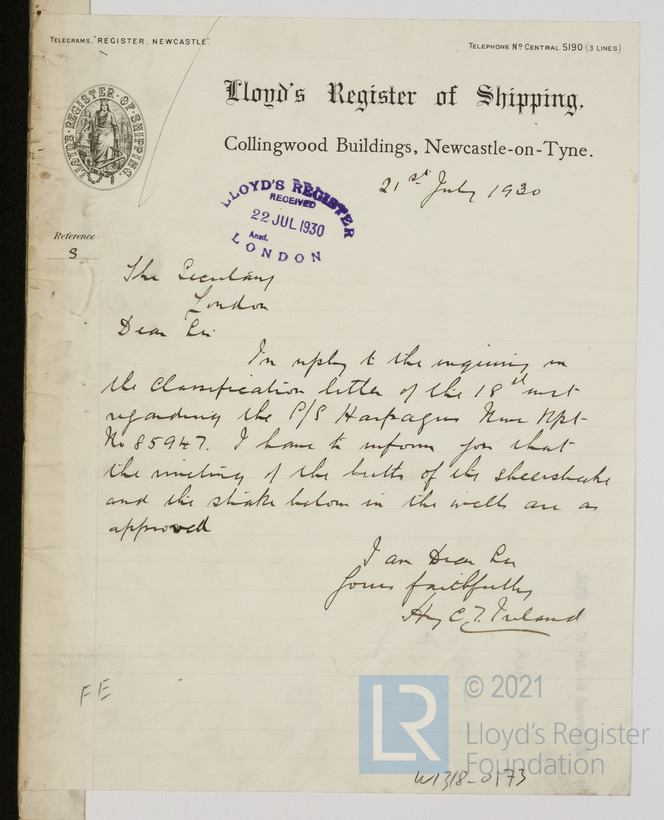 TELEGRAMS, "REGISTER, NEWCASTLE".
TELEPHONE No CENTRAL 5190 (3 LINES)
LLOYD'S REGISTER OF SHIPPING.
Lloyd's Register of Shipping.
Collingwood Buildings, Newcastle-on-Tyne.
21st July 1930
LLOYD'S REGISTER
RECEIVED
22 JUL 1930
Ansd.
LONDON
Reference
S
The Secretary
London
Dear Sir
In reply to the inquiry in
the Classification letter of the 18th inst
regarding the P/S Harpagus Nwc Rpt
No 85947. I have to inform you that
the riveting of the butts of the sheerstrake
and the strake below in the wells are as
approved
I am Dear Sir
Yours faithfully
Hy C. J. Ireland
FE
LR
© 2021
Lloyd's Register
Foundation
W1318-0173